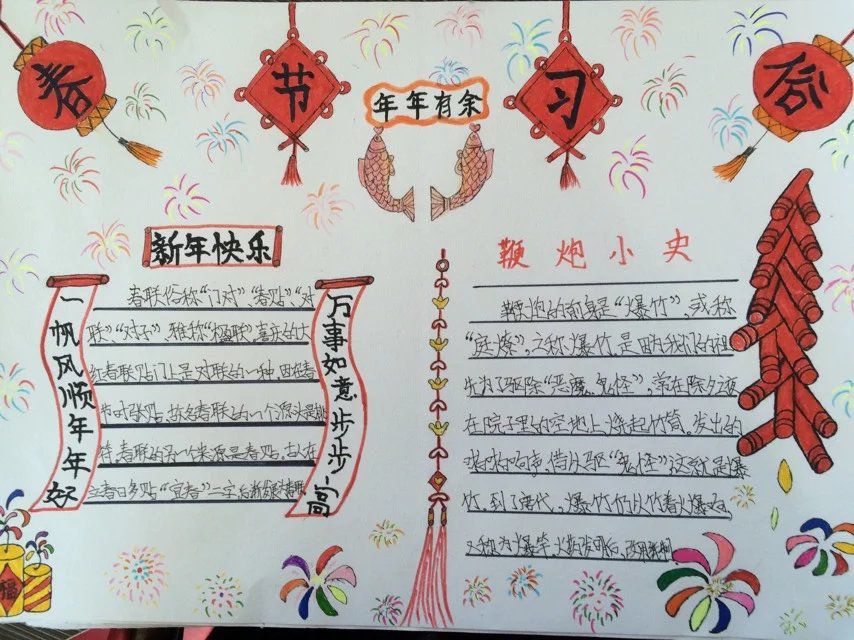 春节习俗
年年有余
新年快乐
一帆风顺年年好
万事如意步步高
春联俗称“门对”、“春贴”、“对
联”“对子”，雅称“楹联”，喜庆的大
红春联贴门上是对联的一种，因在春
节时张贴，故名春联的一个源头是桃
符，春联的另一个来源是春贴，古人在
立春日多贴“宜春”二字，后
鞭炮小史
鞭炮的前身是“爆竹”，或称
“庭燎”，之称爆竹，是因为我们的祖
先为了驱除“恶魔、鬼怪”，常在除夕之夜
在院子里的空地上，烧起竹筒，发出的
响声，借以驱“鬼怪”这就是爆
竹，到了唐代，爆竹仍以竹着火爆
又称为爆竿，火药发明后，改用
福